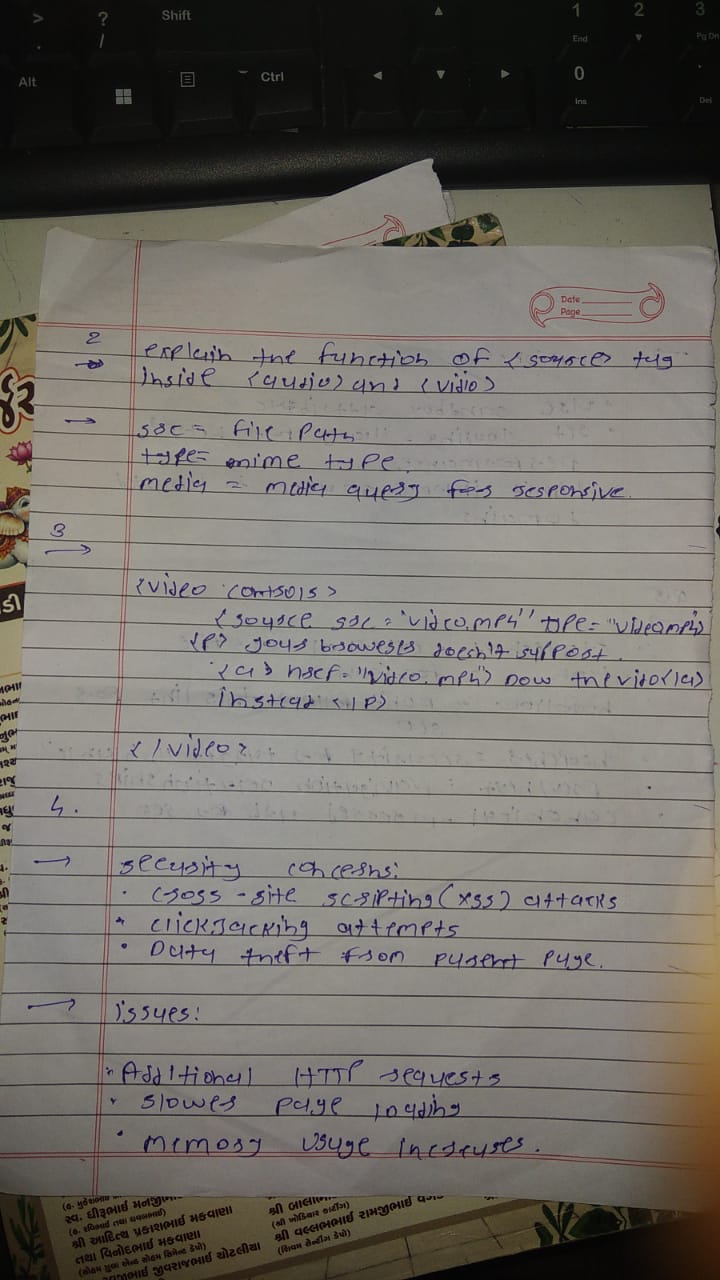 >
?
/
Shift
Alt
Ctrl
1
End
2
3
Pg Dn
0
Ins
Del
Date
Page
2
explain the function of <source> tag
inside <audio> and <vidio>
src = file path
type= mime type.
media = media query for responsive.
3
<video controls>
<source src = "video.mp4" type= "video.mp4>
<P> your broweser doesn't support.
<a> href= "video.mp4> now the vido</a>
instead </P>
</video>
4.
security concerns:
• cross-site scripting (xss) attacks
• clickjacking attempts
• Data theft from parent page.
issues:
• Additional HTTP requests
• slower page loading
• memory usage increases.
સ્વ. ધીરૂભાઈ મનજીભા
શ્રી આદિત્ય પ્રકાશભાઈ મકવાણા
તથા વિનોદભાઈ મકવાણા
જીવરાજભાઈ ચોટલીયા
શ્રી વલ્લભભાઈ રામજીભાઈ